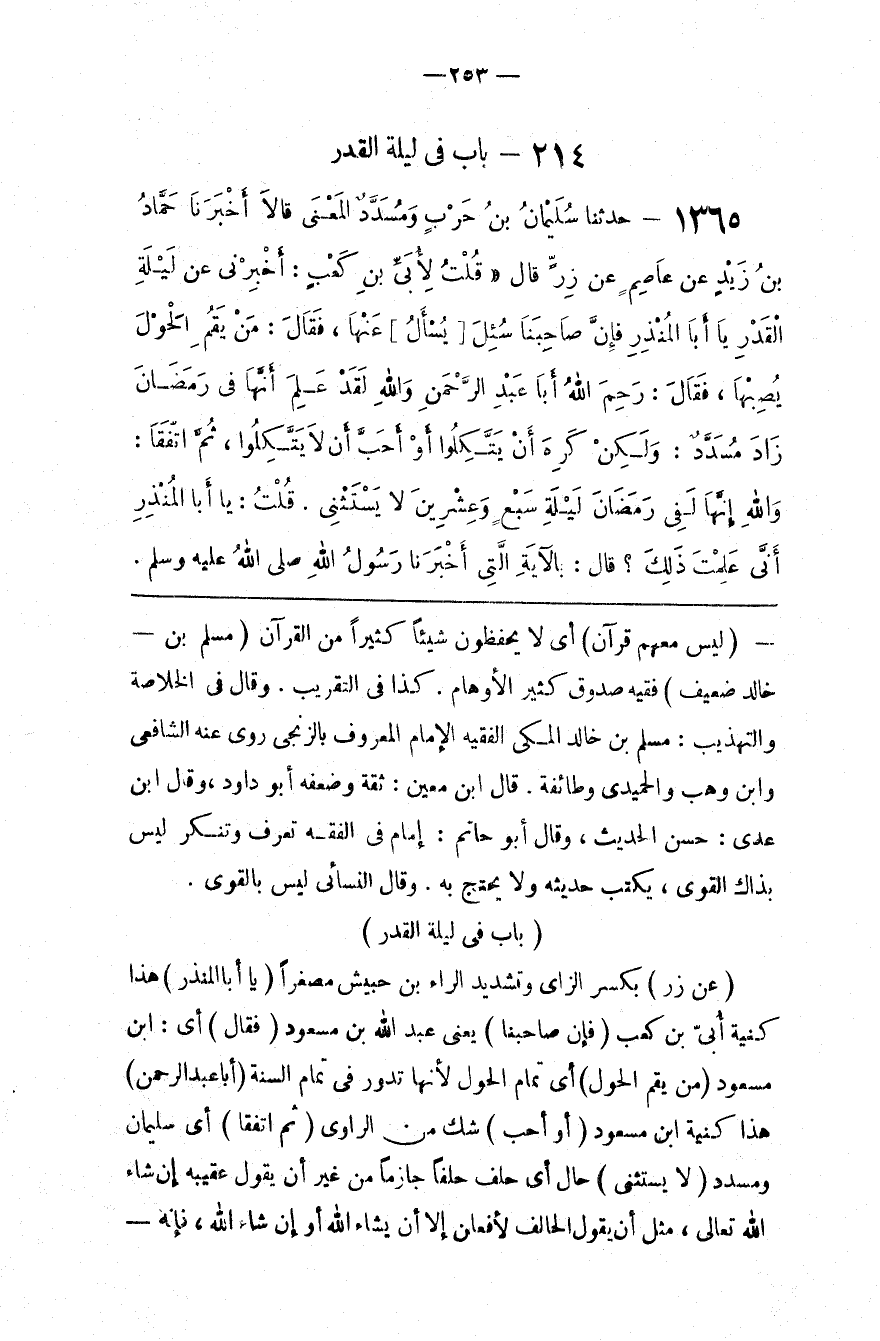 — ٢٥٣ —
٢١٤ – باب فى ليلة القدر
١٣٦٥ – حدثنا سُلَيْمَانُ بنُ حَرْبٍ وَمُسَدَّدٌ المَعْنَى قالاَ أَخْبَرَنَا حَمَّادُ
بنُ زَيْدٍ عن عاَصِمٍ عن زِرٍّ قال « قُلْتُ لِأُبَىِّ بنِ كَعْبٍ : أَخْبِرْنى عن لَيْلَةِ
الْقَدْرِ يَا أَبَا المُنْذِرِ فإِنَّ صاَحِبَنَا سُئِلَ [ يُسْأَلُ ] عَنْهَا ، فَقَالَ : مَنْ يَقُمِ الْحَوْلَ
يُصِبْهَا ، فَقَالَ : رَحِمَ اللهُ أَبَا عَبْدِ الرَّحْمَنِ وَاللهِ لَقَدْ عَلِمَ أَنَّهَا فى رَمَضَانَ
زَادَ مُسَدَّدٌ : وَلَكِنْ كَرِهَ أَنْ يَتَّكِلُوا أَوْ أَحَبَّ أَن لاَ يَتَّكِلُوا ، ثُمَّ اتَّفَقَا :
وَاللهِ إِنَّهَا لَفِى رَمَضَانَ لَيْلَةِ سَبْعٍ وَعِشْرِينَ لا يَسْتَثْنِى . قُلْتُ : يا أَبا المُنْذِرِ
أَنَّى عَلِمْتَ ذَلِكَ ؟ قال : بالآيَةِ الَّتِى أَخْبَرَنا رَسُولُ اللهِ صلى اللهُ عليه وسلم .
— (ليس معهم قرآن) أى لا يحفظون شيئاً كثيراً من القرآن ( مسلم بن —
خالد ضعيف ) فقيه صدوق كثير الأوهام . كذا فى التقريب . وقال فى الخلاصة
والتهذيب : مسلم بن خالد المكى الفقيه الإمام المعروف بالزنجى روى عنه الشافعى
وابن وهب والحميدى وطائفة . قال ابن معين : ثقة وضعفه أبو داود ،وقال ابن
عدى : حسن الحديث ، وقال أبو حاتم : إمام فى الفقه تعرف وتنكر ليس
بذاك القوى ، يكتب حديثه ولا يحتج به . وقال النسائى ليس بالقوى .
( باب فى ليلة القدر )
( عن زر ) بكسر الزاى وتشديد الراء بن حبيش مصغراً ( يا أبا المنذر ) هذا
كنية أُبىّ بن كعب ( فإن صاحبنا ) يعنى عبد الله بن مسعود ( فقال ) أى : ابن
مسعود (من يقم الحول) أى تمام الحول لأنها تدور فى تمام السنة (أبا عبد الرحمن)
هذا كنية ابن مسعود ( أو أحب ) شك من الراوى ( ثم اتفقا ) أى سليمان
ومسدد ( لا يستثنى ) حال أى حلف حلفاً جازماً من غير أن يقول عقيبه إن شاء
الله تعالى ، مثل أن يقول الحالف لأفعلن إلا أن يشاء الله أو إن شاء الله ، فإنه —